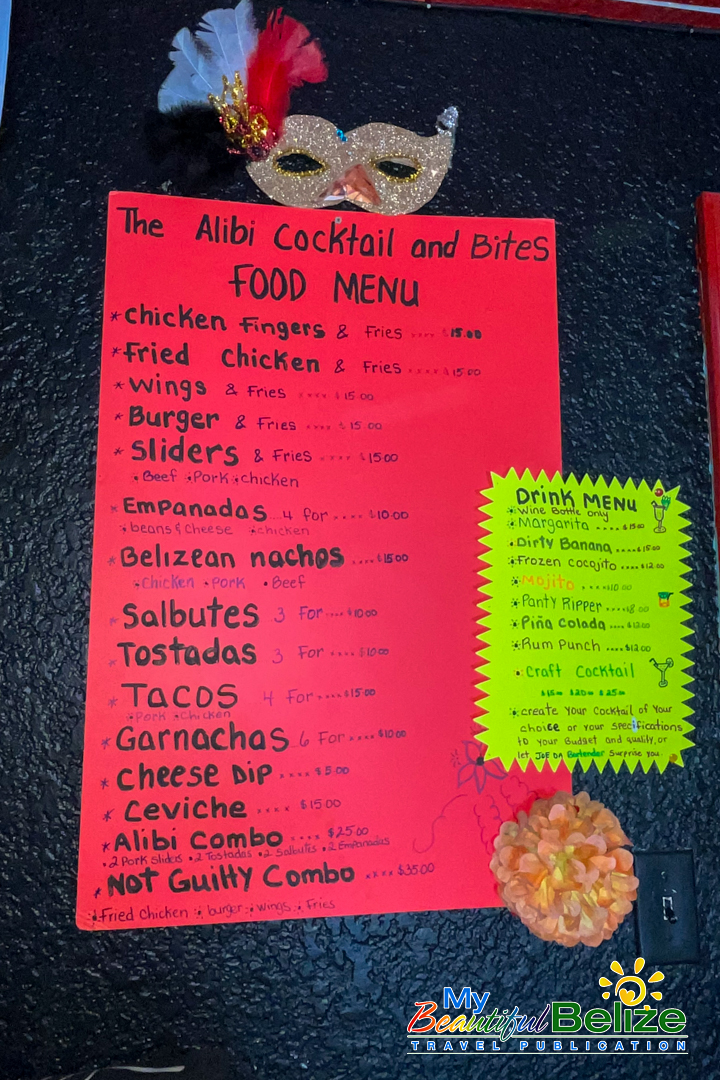 The Alibi Cocktail and Bites
FOOD MENU
*chicken fingers & Fries .... $15.00
*fried chicken & Fries .... $15.00
*wings & Fries .... $15.00
*Burger & Fries .... $15.00
*Sliders & Fries .... $15.00
*Beef *Pork *chicken
*Empanadas 4 for .... $10.00
*beans & cheese *chicken
*Belizean nachos .... $15.00
*Chicken *Pork *Beef
*Salbutes 3 For .... $10.00
*Tostadas 3 For .... $10.00
*Tacos 4 For .... $15.00
*Pork *Chicken
*Garnachas 6 For .... $10.00
*Cheese Dip .... $5.00
*Ceviche .... $15.00
*Alibi Combo .... $25.00
•2 Pork Sliders •2 Tostadas •2 Salbutes •2 Empanadas
*Not Guilty Combo .... $35.00
*Fried Chicken *burger *wings *Fries
Drink Menu
*Wine Bottle only
*Margarita .... $15.00
*Dirty Banana .... $15.00
*Frozen Cocojito .... $12.00
*Mojito .... $10.00
*Panty Ripper .... $8.00
*Piña Colada .... $12.00
*Rum Punch .... $12.00
*Craft Cocktail
$15.00 $20.00 $25.00
*create Your Cocktail of Your
choice or your specifications
to your Budget and quality, or
let JOE DA Bartender Surprise You.
My
Beautiful Belize
TRAVEL PUBLICATION